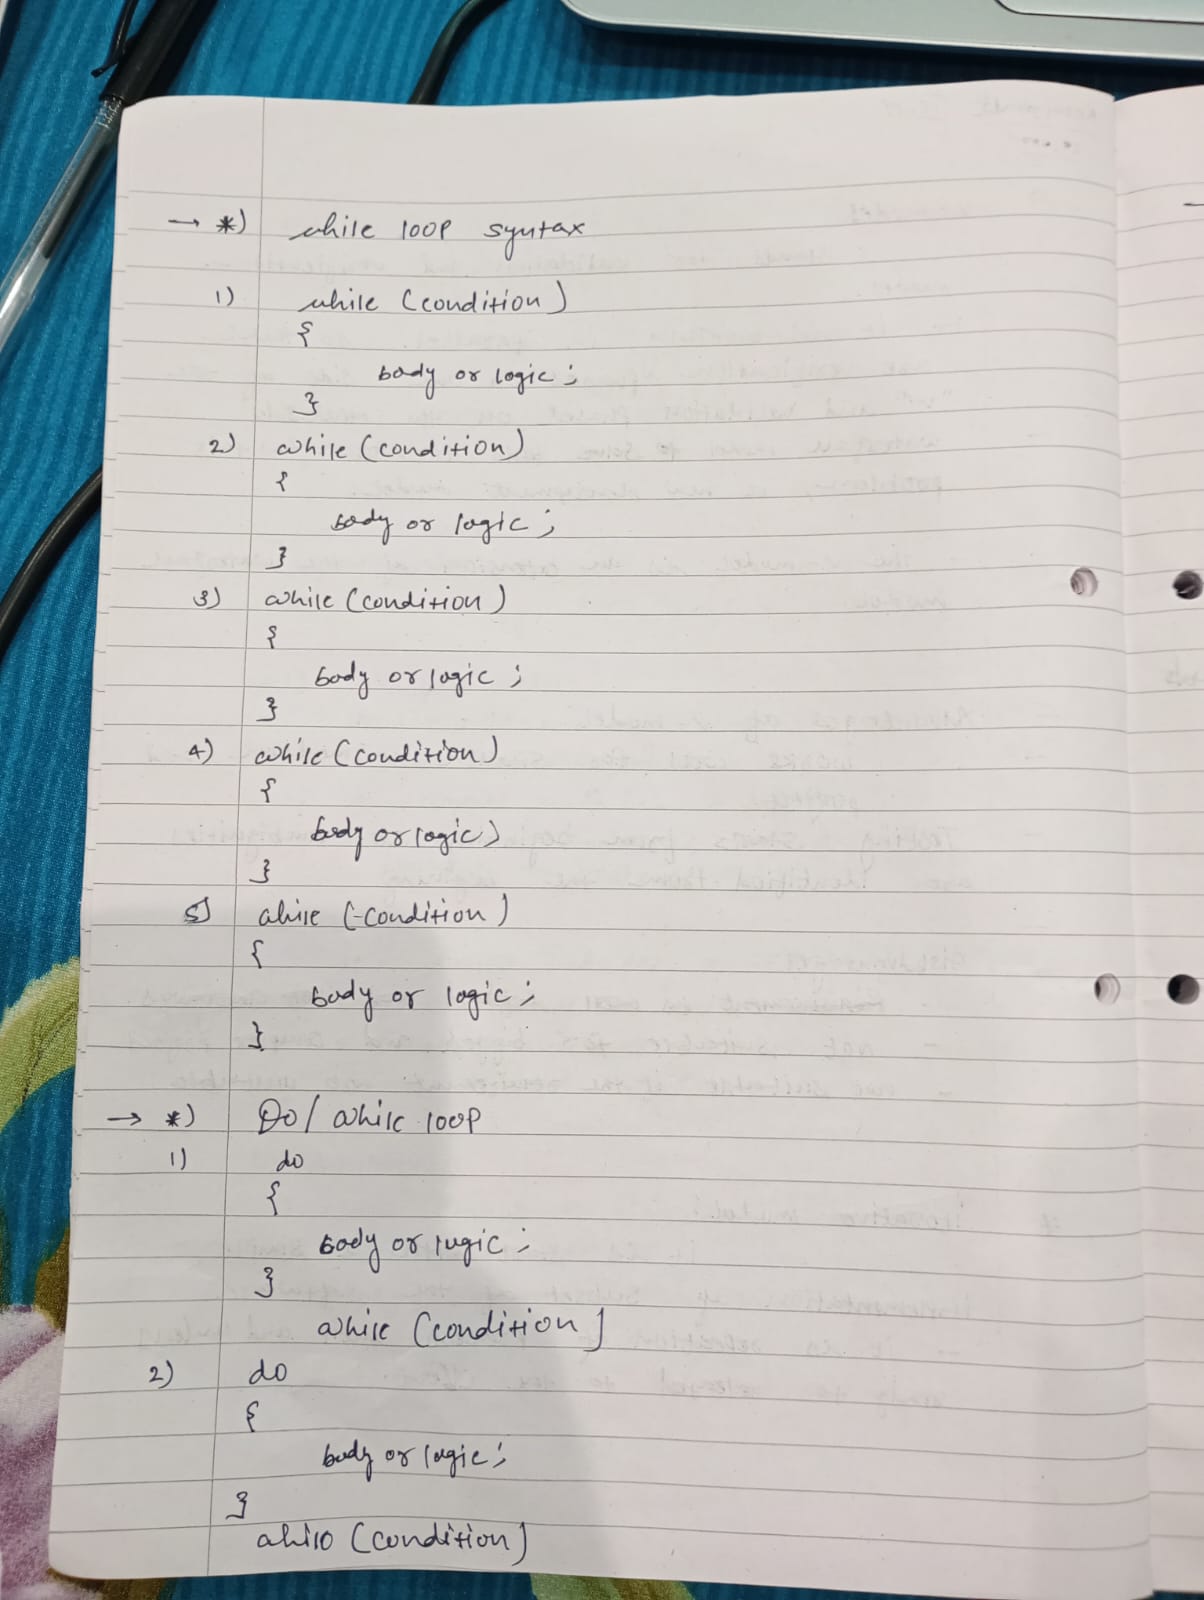 → *) while loop syntax
1) while (condition)
{
body or logic ;
}
2) while (condition)
{
body or logic ;
}
3) while (condition)
{
body or logic ;
}
4) while (condition)
{
body or logic ;
}
5) while (condition)
{
body or logic ;
}
→ *) Do/ while loop
1) do
{
body or logic ;
}
while (condition)
2) do
{
body or logic ;
}
while (condition)